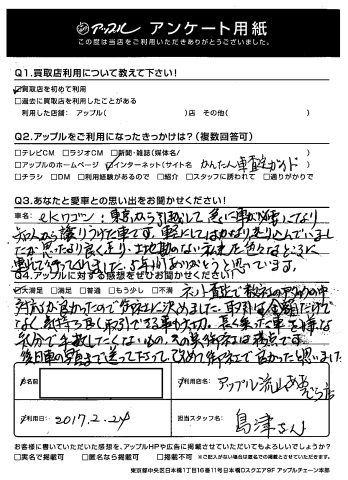 アップル アンケート用紙
この度は当店をご利用いただきありがとうございました。
Q1.買取店利用について教えて下さい!
☑買取店を初めて利用
□過去に買取店を利用したことがある
利用した店舗: アップル( )店 その他( )
Q2.アップルをご利用になったきっかけは?(複数回答可)
□テレビCM □ラジオCM □新聞・雑誌(媒体名/ )
□アップルのホームページ ☑インターネット(サイト名 かんたん車査定ガイド )
□チラシ □DM □利用経験があるので □紹介 □スタッフに誘われて □通りがかりで
Q3.あなたと愛車との思い出をお聞かせください!
車名: ekワゴン: 東京から引越して急に車が必要になり
知人から譲りうけた車です。軽にしてはかなり走りこんでいまし
たが思ったより良く走り、土地勘のない私を色々なところに
連れて行ってくれました。5年間ありがとうと思っています。
Q4.アップルに対する感想をぜひお聞かせください!
☑大満足 □満足 □普通 □もう少し □不満 ネット査定で数社の
対応が良かったので御社に決めました。取引は金額だけで
なく気持ち良く取引できる事が大切。長く乗った車を嫌な
気分で手放したくないもの。その点御社は満点です。
て決めて御社で良かったと思いました
お名前
ご利用店名: アップル流山おおたかの森店
ご利用日: 2017.2.24
担当スタッフ名: 島津さん
お客様に書いていただいた感想を、アップルHPや広告に掲載させていただいてもよろしいでしょうか?
□実名で掲載可 □匿名なら掲載可 □掲載不可 ※ご記入がない場合は匿名での掲載とさせていただきます。
東京都中央区日本橋1丁目16番11号日本橋Dスクエア9F アップルチェーン本部